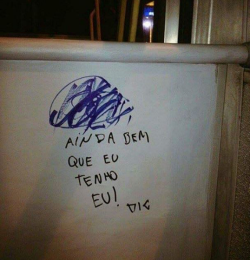 AINDA BEM
QUE EU
TENHO
EU!